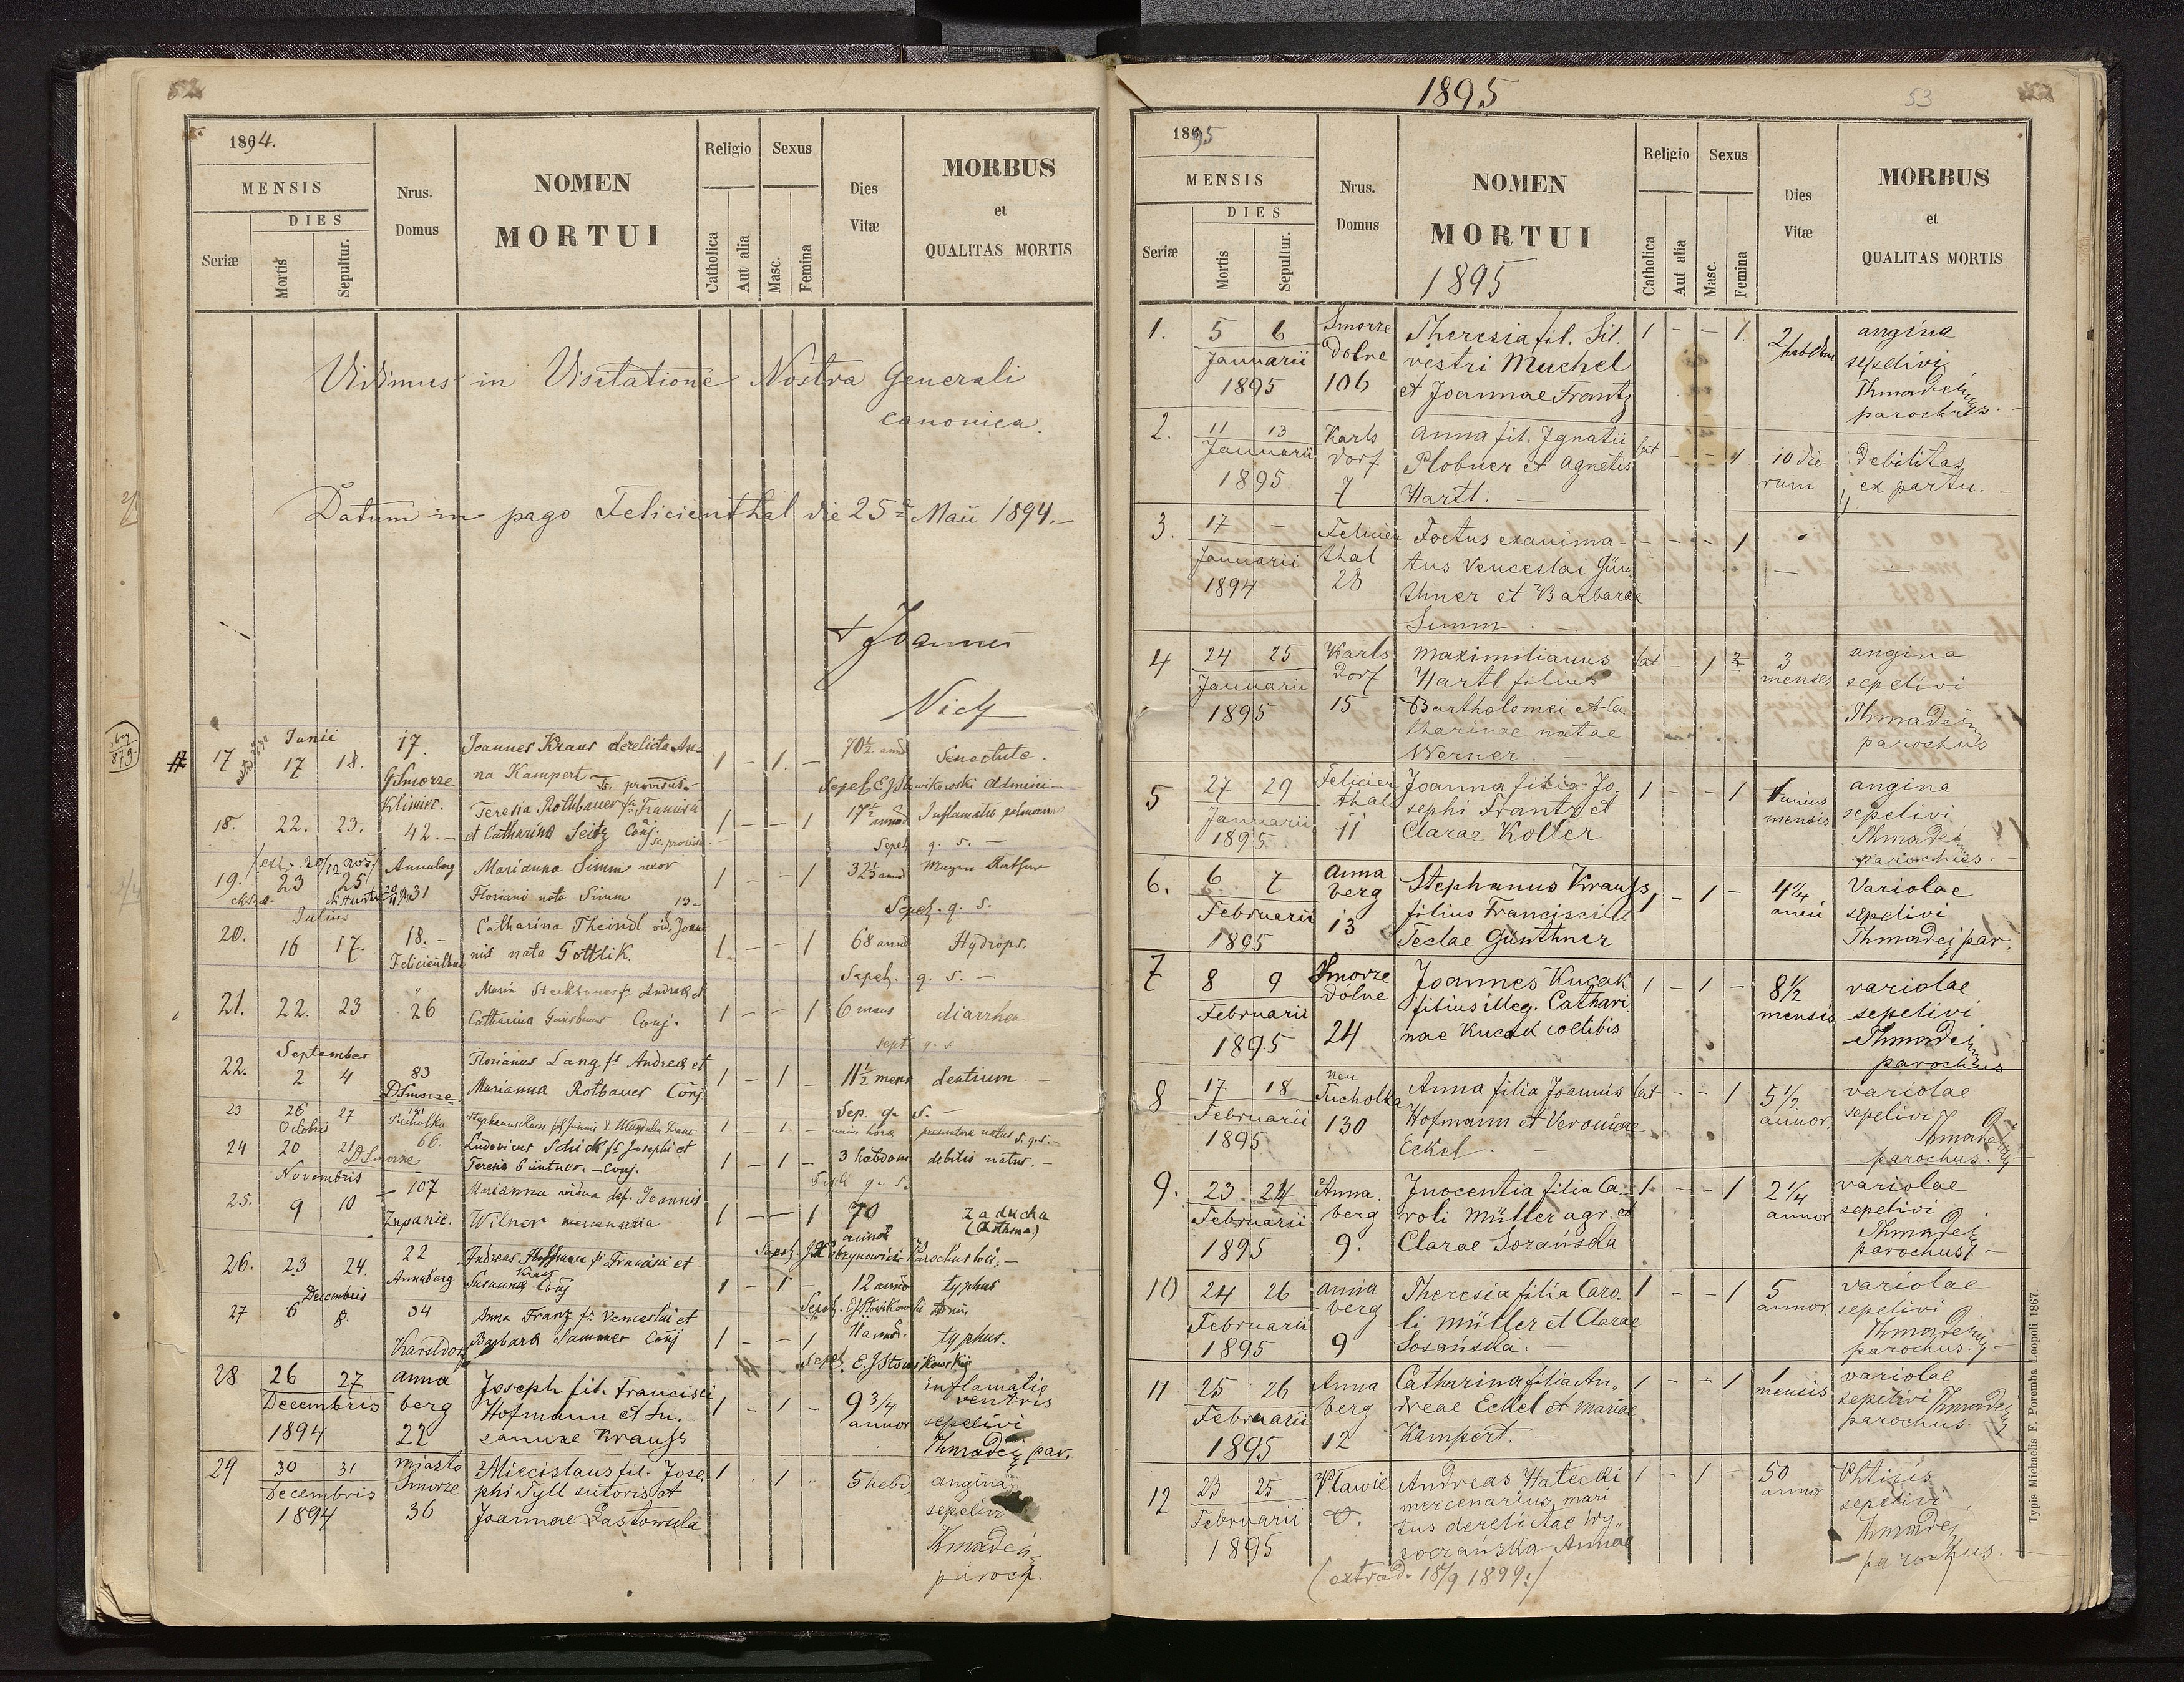 52
1894.
MENSIS
DIES
Seriæ
Mortis
Sepultur.
Nrus.
Domus
NOMEN
MORTUI
Religio
Catholica
Aut alia
Sexus
Masc.
Femina
Dies
Vitæ
MORBUS
et
QUALITAS MORTIS
Vidimus in Visitatione Nostra Generali
canonica.
Datum in pago Felicienthal die 25ª Maii 1894.
+ Joannes
Junii
17 17 18. 17. Joannes Kraus derelicta An-
na Kampert provisus 1 - 1. - 70½ Senectute.
G Smorze
Klimiec.
18. 22. 23. 42. Teresia Rothbauer Francisci
et Catharina Seitz Conj. 1 - - 1 17½
Sepel. q. s.
19. 23 25 Annaberg 31 Marianna Simm uxor
Floriani nata Simm 1 - - 1 32
Sepel. q. s.
Julius
20. 16 17. 18. Felicienthal Catharina Theindl vid. Joan-
nis nata Gottlik. 1. - - 1 68 Hydrops.
Sepel. q. s. -
21. 22. 23 26 Maria Andreas et
Catharina Conj. 1 - - 1 6 mens diarrhea
q. s
September
22. 2 4 83 D Smorze Florianus Lang fs Andreas et
Marianna Rotbauer Conj 1 - 1 - 11½ mens dentium.
23 26 27 Tucholka 1 - 1. -
Sep. q. s. -
Octobris
24 20 21 66. D Smorze Ludovicus Schick fs Josephi et
Teresia Güntner. - Conj. 1 - 1 - 3 habdom debilis natus. -
Novembris
25. 9 10 107 Zupanie. Marianna vidua def. Joannis
Wilner 1 - 1 70 zaducha
(Asthma.)
26. 23 24. 22 Annaberg Andreas Hoffmann fs Francisci et
Susanna Kraus Conj 1 - 1 - 12 typhus
Decembris
27 6 8. 34 Karlsdorf Anna Franz fs Venceslai et
Barbara Sammer Conj 1 - - 1 11 typhus.
Sepel. E. J. Słowikowski
28 26 27 Anna Joseph fil. Francisci inflamatio
Decembris berg Hofmann et Su- 1 - 1 - 9 3/4 ventris
1894 22 sannae Krauss annor sepelivi
Kmadej par.
29 30 31 miasto Miecislaus fil. Jose- 1 . 1 5 hebd angina
Decembris Smorze phi Tyll sutoris et sepelivi
1894 36 Joannae Łastowska
Kmadej
paroch.
1895
53
1895
MENSIS
DIES
Seriæ
Mortis
Sepultur.
Nrus.
Domus
NOMEN
MORTUI
1895
Religio
Catholica
Aut alia
Sexus
Masc.
Femina
Dies
Vitæ
MORBUS
et
QUALITAS MORTIS
1. 5 6 Smorze Theresia fil. Sil- 1 - - 1. 2 angina
Januarii dolne vestri Muchel sepelivi
1895 106 et Joannae Frantz Kmadej
parochus.
2. 11 13 Karls Anna fil. Ignatii lat - - 1 10 die debilitas
Januarii dorf Plobner et Agnetis rum ex partu. -
1895. 7 Hartl. -
3. 17 - Felicien Foetus exanima- - - - 1
Januarii thal tus Venceslai Gün-
1894 28 thner et Barbarae
Simm. -
4 24 25 Karls Maximilianus lat - 1 3 angina
Januarii dorf Hartl filius menses sepelivi
1895 15 Bartholomei et Ca- Kmadej
tharinae natae parochus
Werner. -
5 27 29 Felicien Joanna filia Jo- 1 - - 1 unius angina
Januarii thal sephi Frantz et mensis sepelivi
1895. 11 Clarae Koller Kmadej
parochus. -
6. 6 7 Anna Stephanus Krauss, 1 - 1 - 4¼ Variolae
Februarii berg filius Francisci et annii sepelivi
1895 13 Teclae Günthner Kmadej par.
7 8 9 Smorze Joannes Kucak 1 - 1 - 8½ variolae
Februarii dolne filius illeg. Cathari- mensis sepelivi
1895 24 nae Kucak coelibis Kmadej
parochus
8 17 18 neu Anna filia Joannis lat - - 1 5½ variolae
Februarii Tucholka Hofmann et Veronicae annor. sepelivi
1895 130 Eckel. - Kmadej
parochus.
9. 23. 24 Anna. Inocentia filia Ca- 1. - - 1 2¼ variolae
Februarii berg roli Müller agr. et annor sepelivi
1895 9. Clarae Sozańska Kmadej
parochus -
10 24 26 Anna Theresia filia Caro- 1 - - 1 5 variolae
Februarii berg li Müller et Clarae annor. sepelivi
1895 9 Sosańska. - Kmadej
parochus. -
11 25 26 Anna Catharina filia An- 1 - - 1 1 variolae
Februarii berg dreae Eckel et Mariae mensis sepelivi Kmadej
1895 12 Kampert. - parochus.
12 23 25 Plawie Andreas Hatecki 1 - 1 - 50 Phtisis
Februarii mercenarius, mari annor sepelivi
1895 tus derelictae Wy- Kmadej
soczańska Annae parochus.
(extrad. 18/9 1899.)
Typis Michaelis F. Poremba Leopoli 1867.